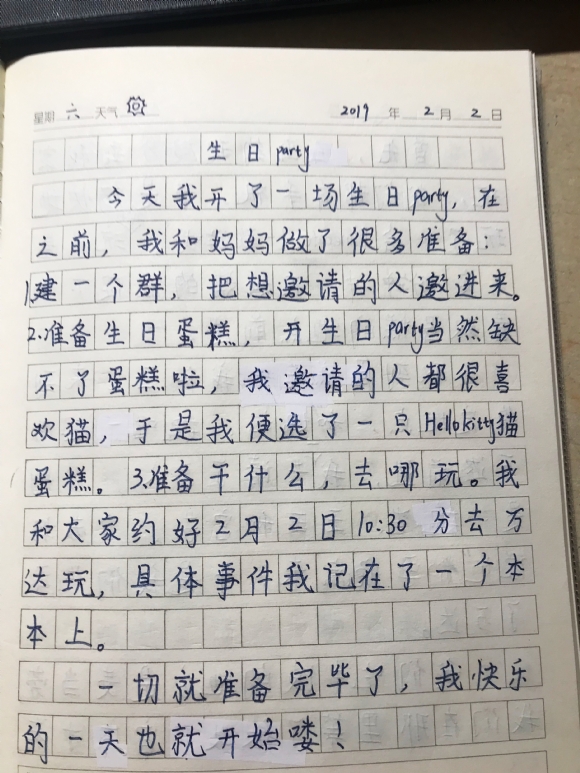 星期 六 天气 2019 年 2 月 2 日
生日party
今天我开了一场生日party，在
之前，我和妈妈做了很多准备：
1.建一个群，把想邀请的人邀进来。
2.准备生日蛋糕，开生日party当然缺
不了蛋糕啦，我邀请的人都很喜
欢猫，于是我便选了一只Hellokitty猫
蛋糕。3.准备干什么，去哪玩。我
和大家约好2月2日10:30分去万
达玩，具体事件我记在了一个本
本上。
一切就准备完毕了，我快乐
的一天也就开始喽！